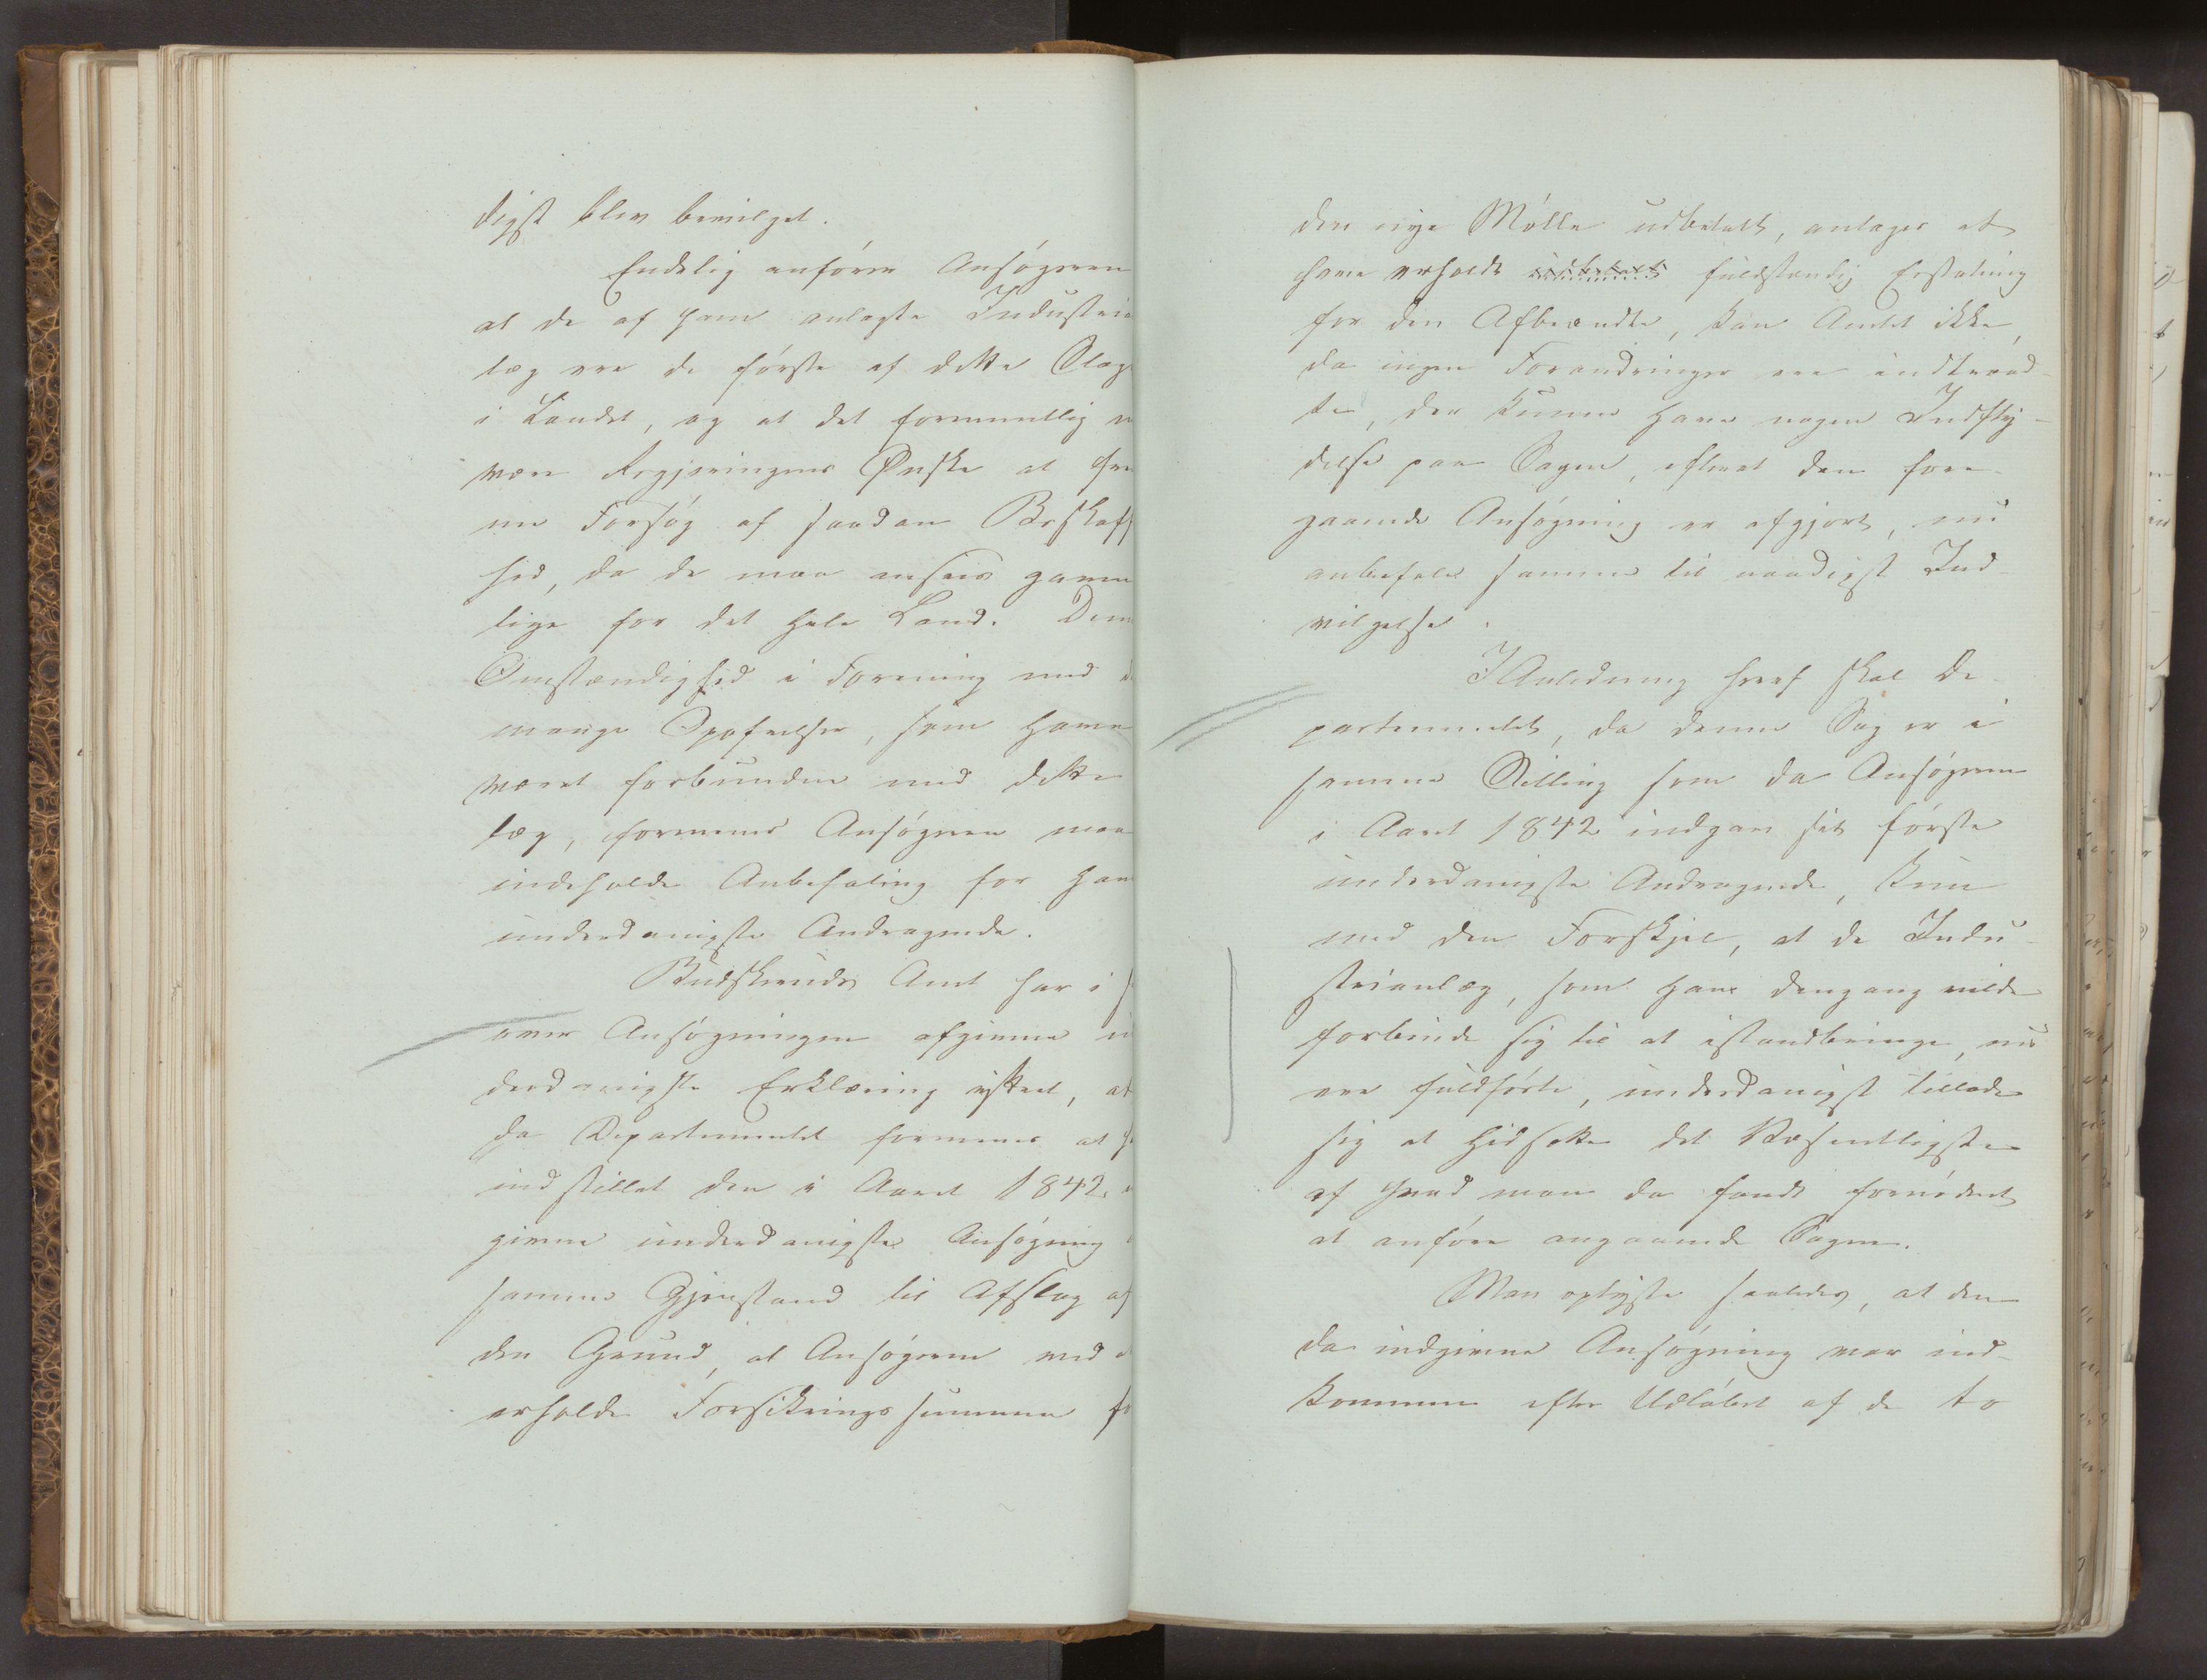 digst blev bevilget.
Endelig anfører Ansøgeren
at de af ham anlagte Industrie
læg ere de første af dette Slag
i Landet, og at det formentlig
være Regjeringens Ønske at
me Forsøg af saadan Beskaff
hed, da de maa ansees gavn
lige for det hele Land. Denn
Omstændighed i Forening med
mange Opofrelser, som have
været forbundne med dette
læg, formener Ansøgeren maa
indeholde Anbefaling for han
underdanigste Andragende.
Budskeruds Amt har i
over Ansøgningen afgivne u
derdanigste Erklæring yttret, at
da Departementet formener at h
indstillet den i Aaret 1842
givne underdanigste Ansøgning
samme Gjenstand til Afslag af
den Grund, at Ansøgeren ved
erholde Forsikringssummen fo
den nye Mølle udbetalt, antages at
have erholdt udbetalt fuldstændig Erstatning
for den Afbrændte, kan Amtet ikke,
da ingen Forandringer ere indtraad-
te, der kunne have nogen Indfly-
delse paa Sagen, efterat den fore-
gaaende Ansøgning er afgjort, nu
anbefale samme til naadigst Ind-
vilgelse.
I Anledning heraf skal De-
partementet, da denne Sag er i
samme Stilling som da Ansøgeren
i Aaret 1842 indgav sit første
underdanigste Andragende, kun
med den Forskjel, at de Indu-
strianlæg, som han dengang vilde
forbinde sig til at istandbringe, nu
ere fuldførte, underdanigst tillade
sig at hidsætte det Væsentligste
af hvad man da fandt fornødent
at anføre angaaende Sagen.
Man oplyste saaledes, at den
da indgivne Ansøgning var ind-
kommen efter Udløbet af de to